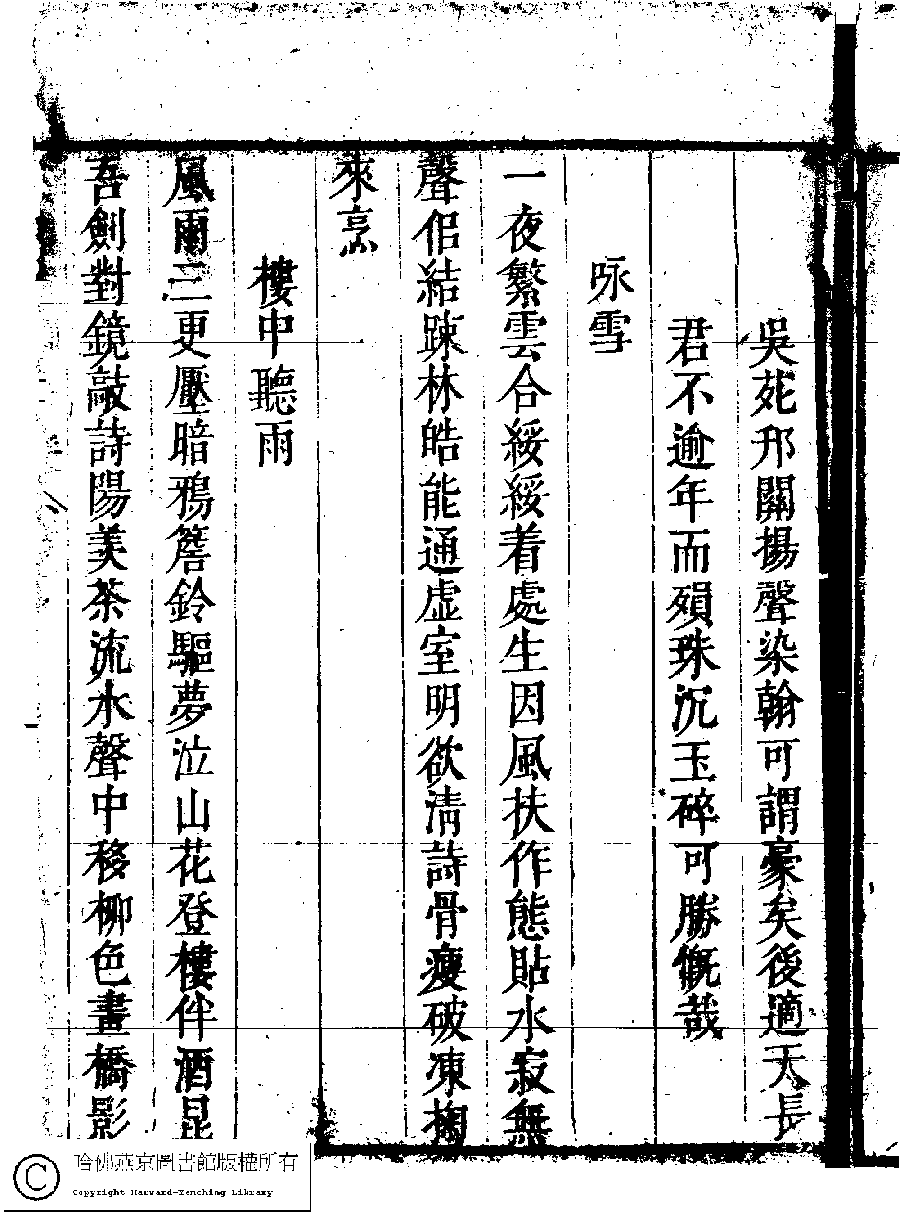 吳苑邗關揚聲染翰可謂豪矣後適天長
君不逾年而殞珠沉玉碎可勝慨哉
咏雪
一夜繁雲合綏綏着處生因風扶作態貼水寂無
聲侶結踈林皓能通虛室明欲淸詩骨瘦破凍掬
來烹
樓中聽雨
風雨三更壓暗鴉簷鈴驅夢泣山花登樓伴酒昆
吾劍對鏡敲詩陽羡茶流水聲中移柳色畫橋影
哈佛燕京圖書館版權所有
Copyright Harvard-Yenching Library